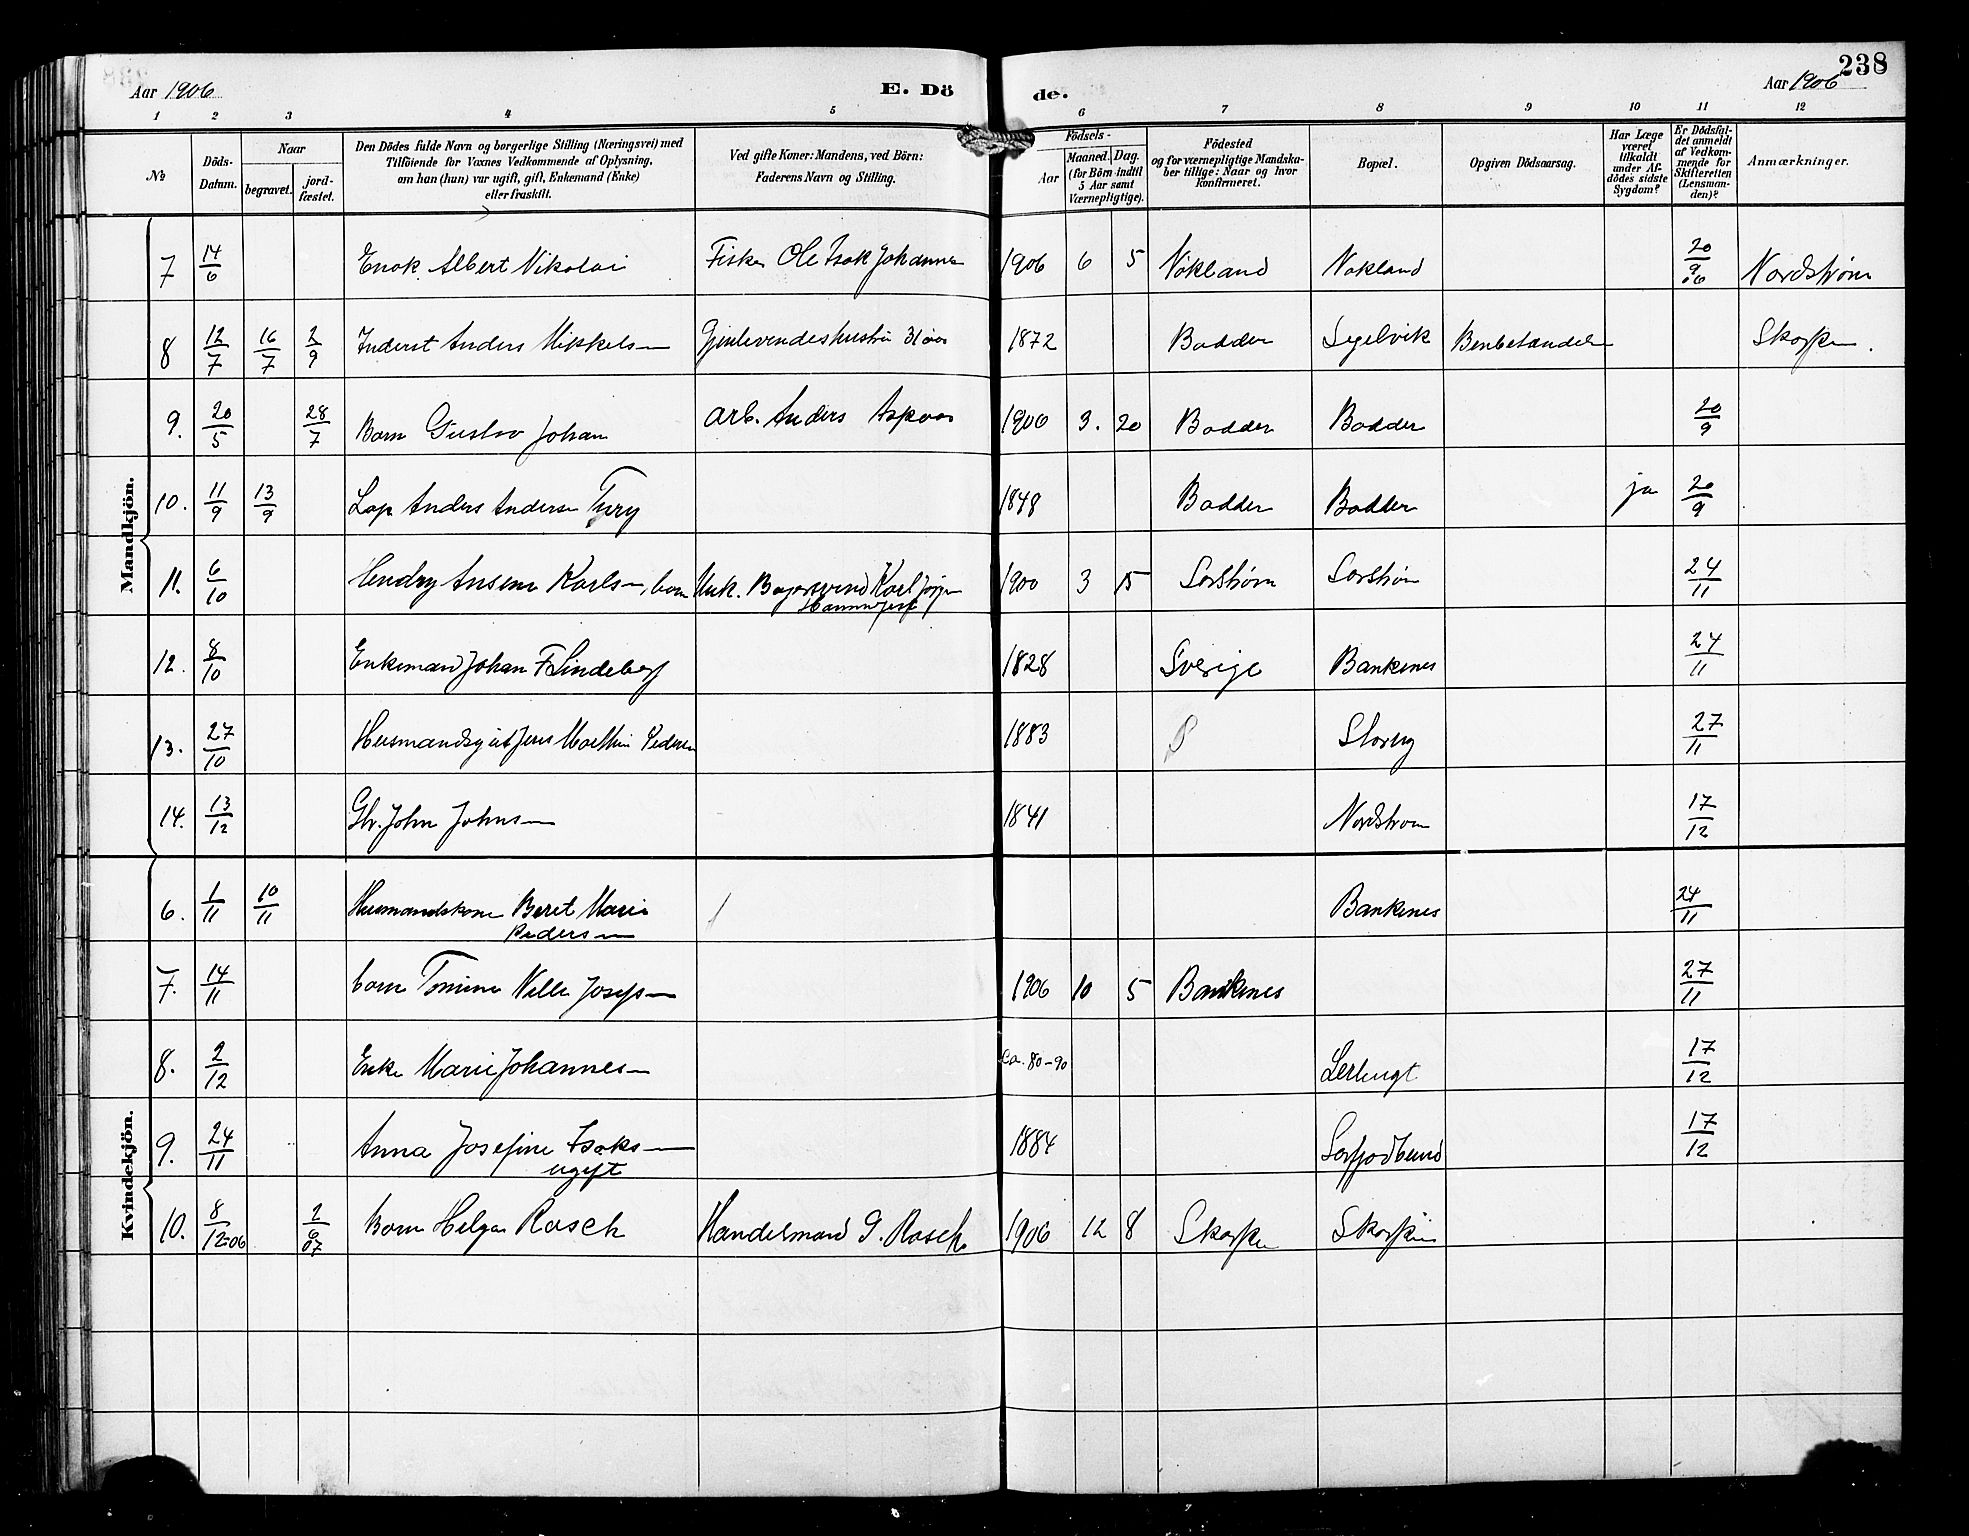 238
Aar 1906
E. Dö
de.
Aar 1906
1 2 3 4 5 6 7 8 9 10 11 12
No
Döds-Datum.
Naar
begravet.
jord-fæstet.
Den Dödes fulde Navn og borgerlige Stilling (Næringsvei) med
Tilföiende for Voxnes Vedkommende af Oplysning,
om han (hun) var ugift, gift, Enkemand (Enke)
eller fraskilt.
Ved gifte Koner: Mandens, ved Börn:
Faderens Navn og Stilling.
Födsels-
Aar
Maaned. Dag.
(for Börn indtil
5 Aar samt
Værnepligtige).
Födested
og for værnepligtige Mandska-
ber tillige: Naar og hvor
konfirmeret.
Bopæl.
Opgiven Dödsaarsag.
Har Læge
været
tilkaldt
under Af-
dödes sidste
Sygdom?
Er Dödsfal-
det anmeldt
af Vedkom-
mende for
Skifteretten
(Lensman-
den)?
Anmærkninger.
Mandkjön.
7 14/6 Enok Albert Nikolai Fisker Ole Isak Johannes 1906 6 5 Nokland Nokland 20/9 06 Nordstrøm
8 12/7 16/7 2/9 Inderst Anders Mikkelsen 31 1872 Badder Segelvik Benbetændelse
9. 20/5 28/7 Barn Gustav Johan Arb. Anders 1906 3. 20 Badder Badder 20/9
10. 11/9 13/9 Lap Anders Andersen Tury 1848 Badder Badder ja 20/9
11. 6/10 Hendry Karlsen, barn Karl 1900 3 15 Sorstrøm Sorstrøm 24/11
12. 8/10 Enkemand Johan F. Lindeberg 1828 Sverige Bankenes 24/11
13. 27/10 Jens Pedersen 1883 27/11
14. 13/12 Gbr. John Johnsen 1841 Nordstrom 17/12
Kvindekjön.
6. 1/11 10/11 Husmandskone Beret Marie
Pedersen Bankenes 24/11
7. 14/11 barn 1906 10 5 Bankenes 27/11
8. 2/12 Enke Marie Johannesen ca. 80-90 Lerbugt 17/12
9. 24/11 Anna Josefine Isaksen
ugift 1884 Sorfjordbund 17/12
10. 8/12-06 2/6 07 Barn Helga Rasch Handelsmand G. Rasch 1906 12 8